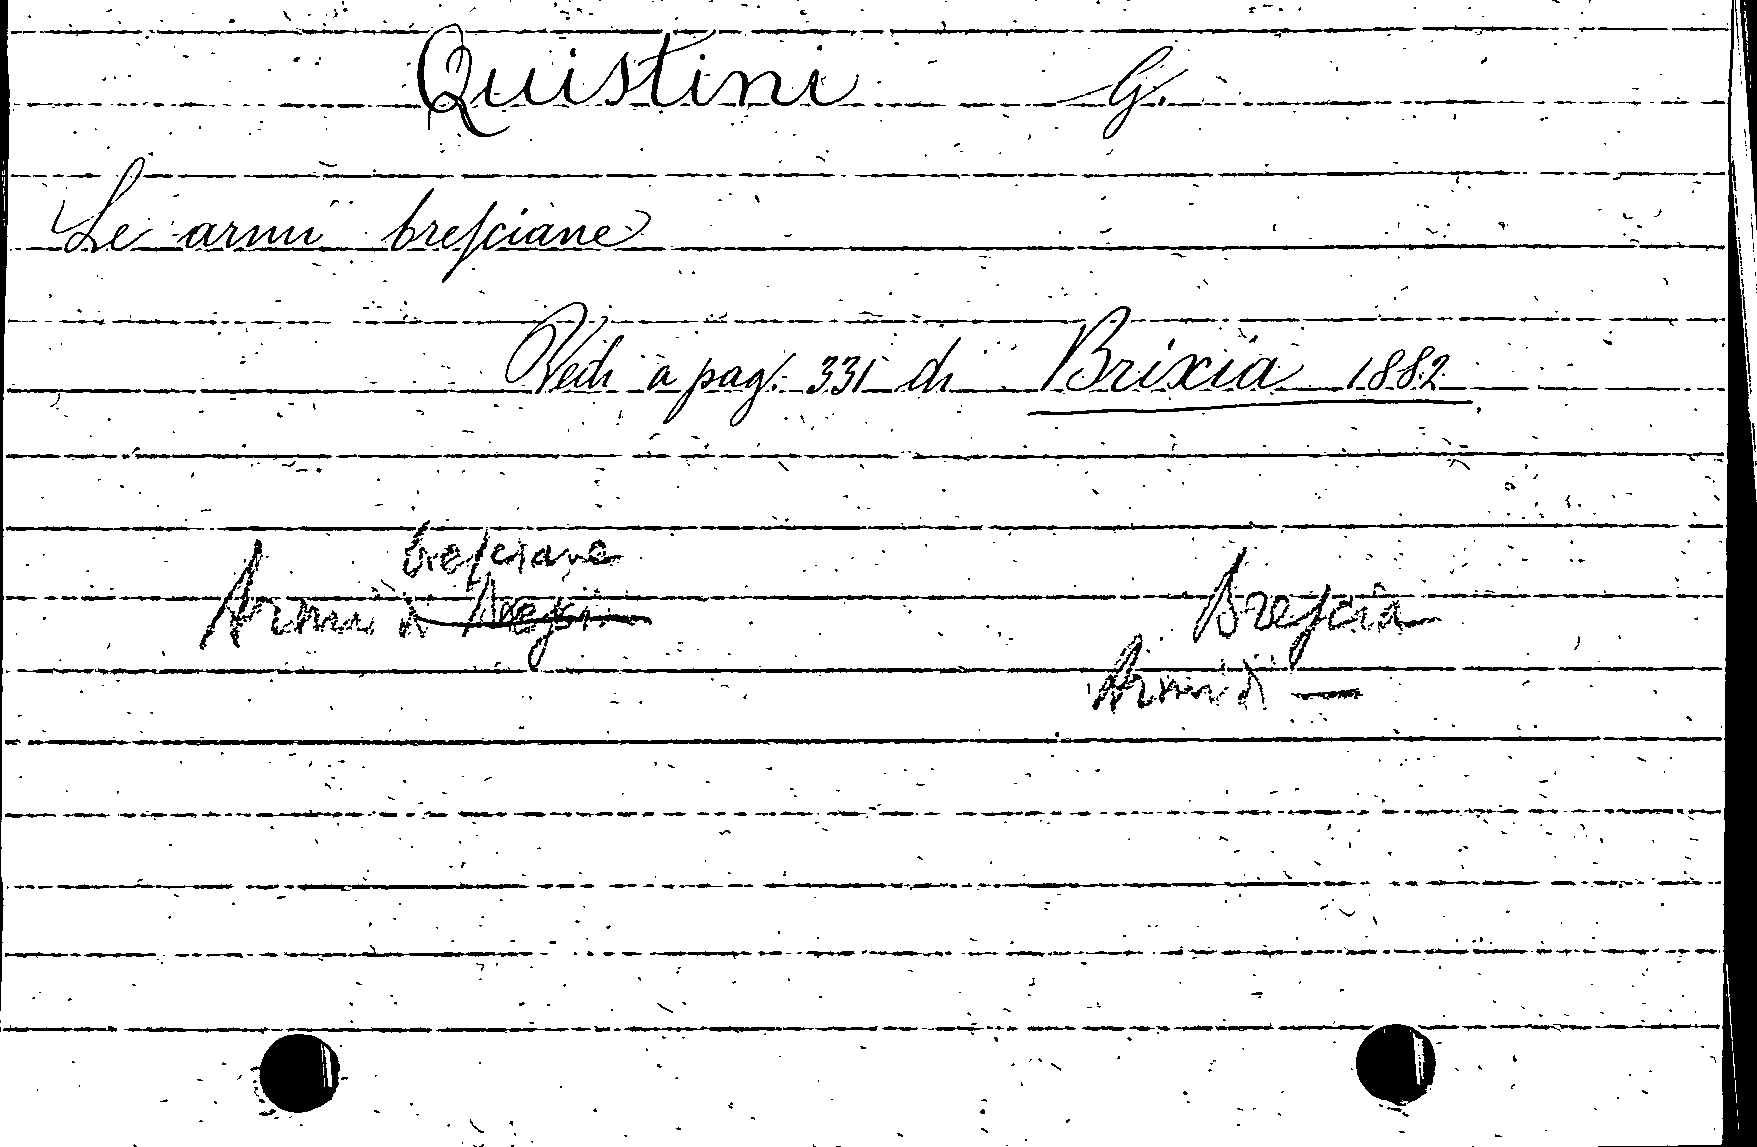 Quistini G.
Le armi bresciane
Vedi a pag. 331 di Brixia 1882
bresciane
Armi di Bresci
Brescia
Armi di —